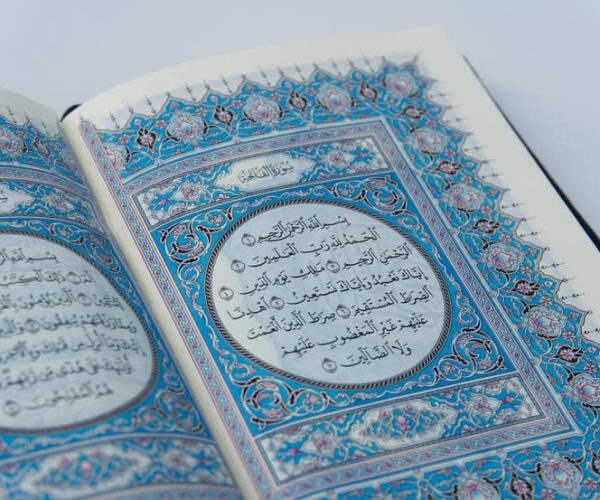 سُورَةُ الْفَاتِحَةِ
بِسْمِ اللَّهِ الرَّحْمَٰنِ الرَّحِيمِ ١
الْحَمْدُ لِلَّهِ رَبِّ الْعَالَمِينَ ٢
الرَّحْمَٰنِ الرَّحِيمِ ٣ مَالِكِ يَوْمِ الدِّينِ ٤
إِيَّاكَ نَعْبُدُ وَإِيَّاكَ نَسْتَعِينُ ٥ اهْدِنَا
الصِّرَاطَ الْمُسْتَقِيمَ ٦ صِرَاطَ الَّذِينَ أَنْعَمْتَ
عَلَيْهِمْ غَيْرِ الْمَغْضُوبِ عَلَيْهِمْ
وَلَا الضَّالِّينَ ٧
بِسْمِ اللَّهِ
الم ١ ذَٰلِكَ الْكِتَابُ
الَّذِينَ يُؤْمِنُونَ
وَمِمَّا رَزَقْنَاهُمْ يُنفِقُونَ ٣
عَلَىٰ هُدًى مِّن رَّبِّهِمْ
هُمُ الْمُفْلِحُونَ ٥